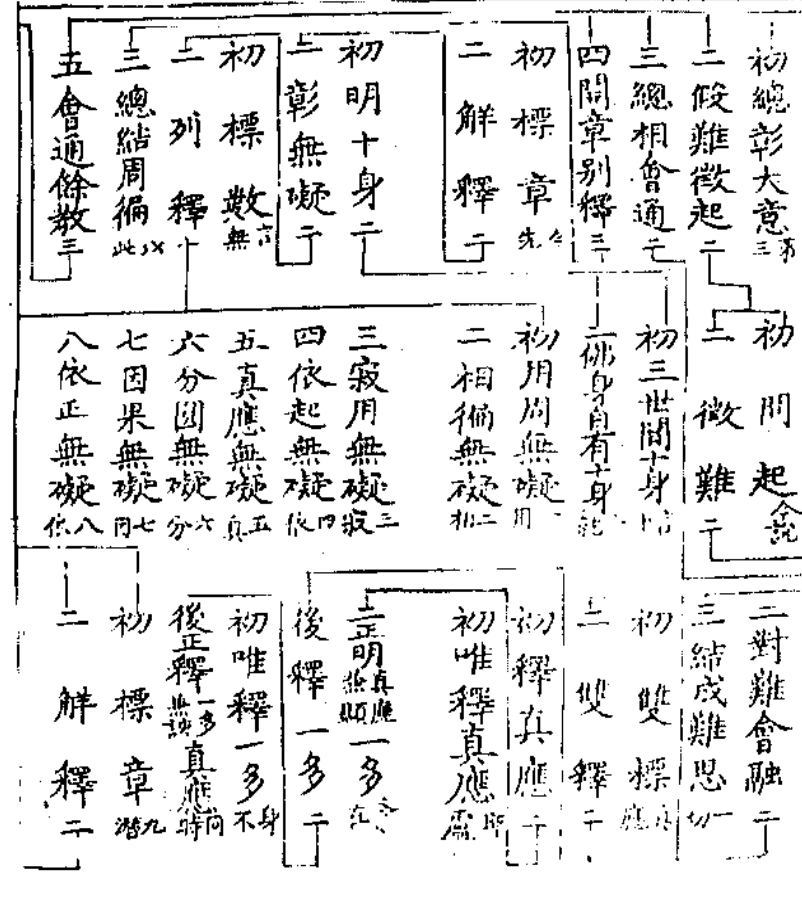 初總彰大意三第
二假難徵起二
三總相會通二
四開章別釋三
初標章先
二解釋二
初明十身二
二彰無礙二
初標數無
二列釋十
三總結周徧此
五會通餘教三
初問起
二徵難二
初三世間十身
二佛身自有十身
初用周無礙用
二相徧無礙相二
三寂用無礙寂三
四依起無礙依四
五真應無礙真五
六分圓無礙分六
七因果無礙因七
八依正無礙依八
二對難會融二
三結成難思一切
初雙標真應
二雙釋二
初釋真應二
初唯釋真應
二正明真應無礙一多
後釋一多二
初唯釋一多身不
後正釋一多無礙真應同時
初標章潛九
二解釋二